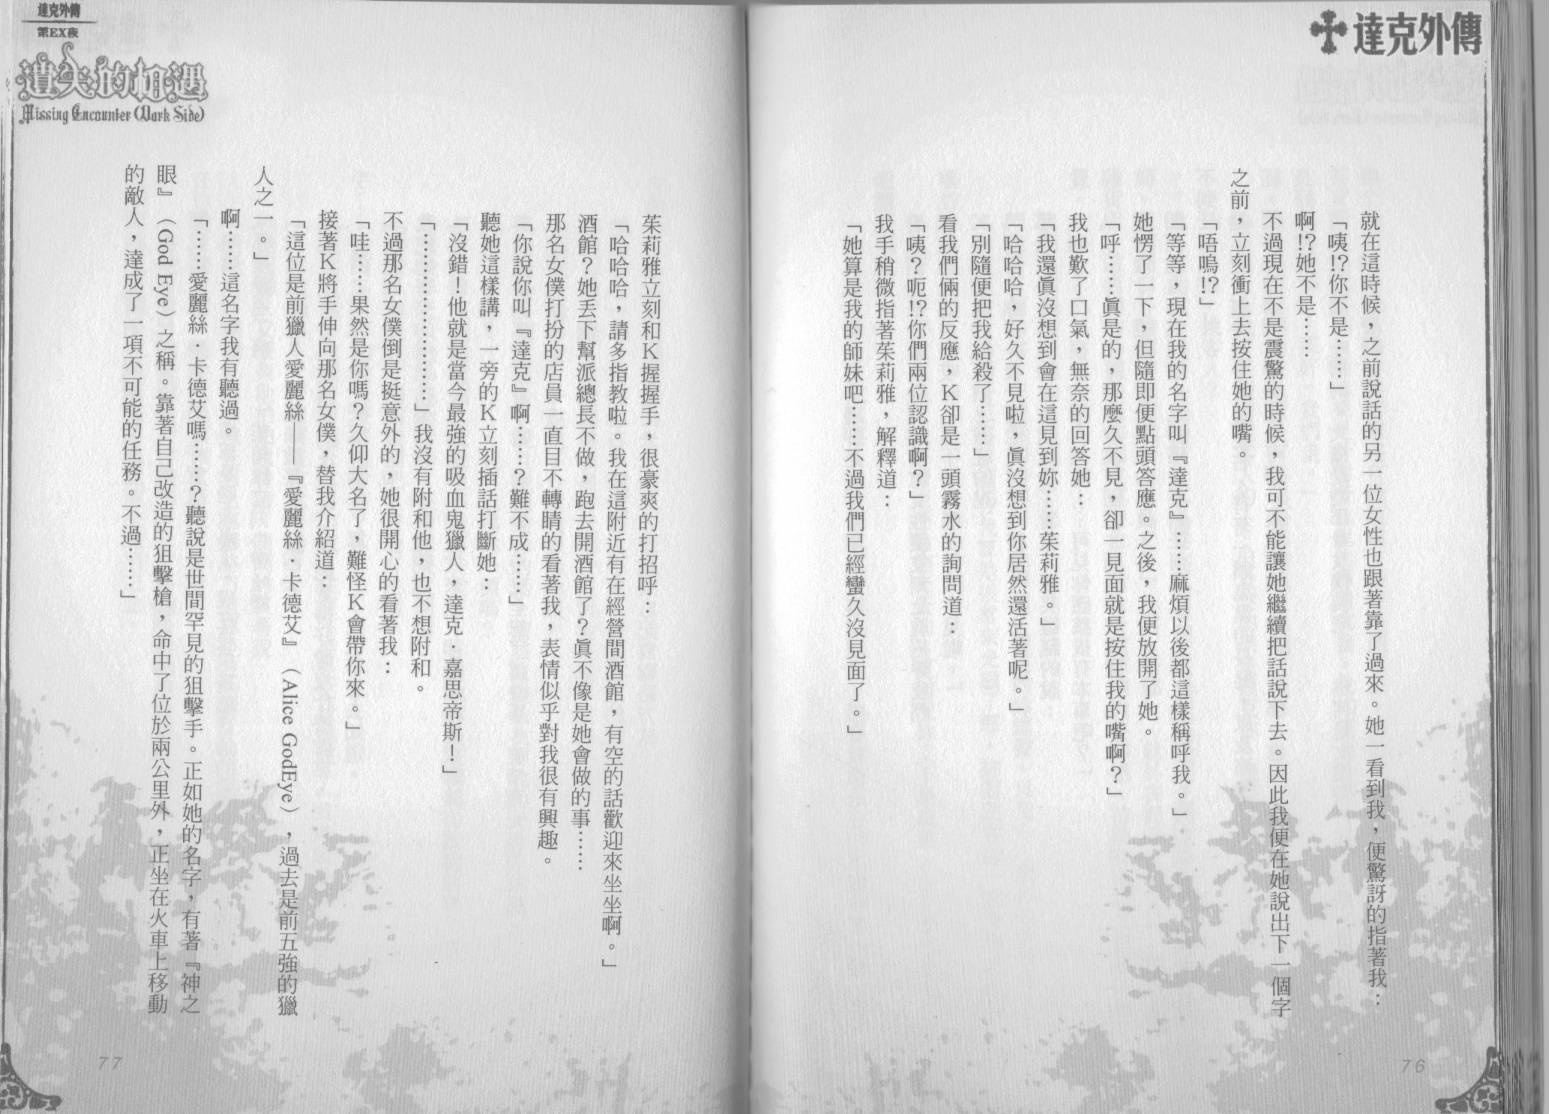 達克外傳
就在這時候，之前說話的另一位女性也跟著靠了過來。她一看到我，便驚訝的指著我：
「咦!?你不是……」
啊!?她不是……
不過現在不是震驚的時候，我可不能讓她繼續把話說下去。因此我便在她說出下一個字
之前，立刻衝上去按住她的嘴。
「唔嗚!?」
「等等，現在我的名字叫『達克』……麻煩以後都這樣稱呼我。」
她愣了一下，但隨即便點頭答應。之後，我便放開了她。
「呼……真是的，那麼久不見，卻一見面就是按住我的嘴啊？」
我也歎了口氣，無奈的回答她：
「我還真沒想到會在這見到妳……茱莉雅。」
「哈哈哈，好久不見啦，真沒想到你居然還活著呢。」
「別隨便把我給殺了……」
看我們倆的反應，K卻是一頭霧水的詢問道：
「咦？呃!?你們兩位認識啊？」
我手稍微指著茱莉雅，解釋道：
「她算是我的師妹吧……不過我們已經蠻久沒見面了。」
76
達克外傳
第EX夜
遺失的相遇
Missing Encounter (Dark Side)
茱莉雅立刻和K握握手，很豪爽的打招呼：
「哈哈哈，請多指教啦。我在這附近有在經營間酒館，有空的話歡迎來坐坐啊。」
酒館？她丟下幫派總長不做，跑去開酒館了？真不像是她會做的事……
那名女僕打扮的店員一直目不轉睛的看著我，表情似乎對我很有興趣。
「你說你叫『達克』啊……？難不成……」
聽她這樣講，一旁的K立刻插話打斷她：
「沒錯！他就是當今最強的吸血鬼獵人，達克．嘉思帝斯！」
「…………………」我沒有附和他，也不想附和。
不過那名女僕倒是挺意外的，她很開心的看著我：
「哇……果然是你嗎？久仰大名了，難怪K會帶你來。」
接著K將手伸向那名女僕，替我介紹道：
「這位是前獵人愛麗絲——『愛麗絲．卡德艾』（Alice GodEye），過去是前五強的獵
人之一。」
啊……這名字我有聽過。
「……愛麗絲．卡德艾嗎……？聽說是世間罕見的狙擊手。正如她的名字，有著『神之
眼』（God Eye）之稱。靠著自己改造的狙擊槍，命中了位於兩公里外，正坐在火車上移動
的敵人，達成了一項不可能的任務。不過……」
77